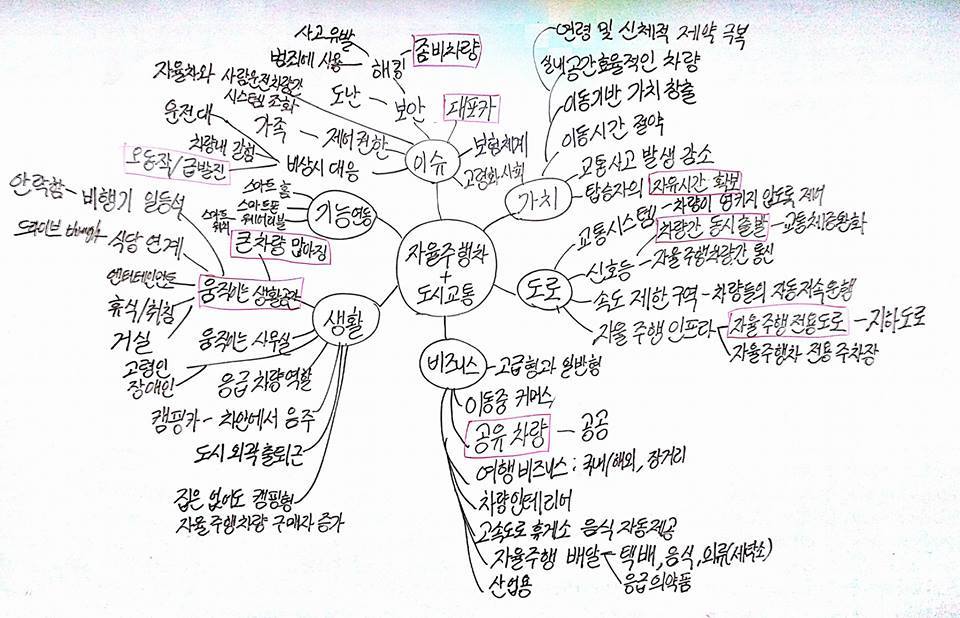 자율주행차
+
도시교통
이슈
보안
해킹
좀비차량
사고유발
범죄에 사용
도난
대포차
보험체계
고령화 사회
자율차와 사람운전차량간
시스템 조화
제어권한
가족
비상시 대응
운전대
차량내 감험
오동작/급발진
가치
연령 및 신체적 제약 극복
실내공간효율적인 차량
이동기반 가치 창출
이동시간 절약
교통사고 발생 감소
탑승자의 자유시간 확보
도로
교통시스템 - 차량이 엉키지 않도록 제어
신호등
차량간 동시출발 - 교통체증완화
자율주행차량간 통신
속도 제한구역 - 차량들의 자동저속운행
자율 주행 인프라
자율주행 전용도로 - 지하도로
자율주행차 전용 주차장
비즈니스
고급형과 일반형
이동중 커머스
공유 차량 - 공공
여행 비즈니스 : 국내/해외, 장거리
차량인테리어
고속도로 휴게소 음식 자동제공
자율주행 배달 - 택배, 음식, 의류(세탁소)
응급의약품
산업용
생활
움직이는 생활공간
큰차량 많아짐
안락함 - 비행기 일등석
드라이브 - 식당 연계
엔터테인먼트
휴식/취침
거실
움직이는 사무실
고령인
장애인
응급 차량역할
캠핑카 - 차안에서 음주
도시 외곽 출퇴근
집은 없어도 캠핑형
자율주행차량 구매자 증가
기능연동
스마트 홈
스마트폰
웨어러블
스마트
워치